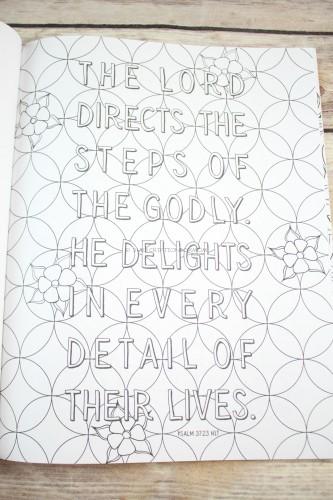 THE LORD
DIRECTS THE
STEPS OF
THE GODLY.
HE DELIGHTS
IN EVERY
DETAIL OF
THEIR LIVES.
PSALM 37:23 NLT